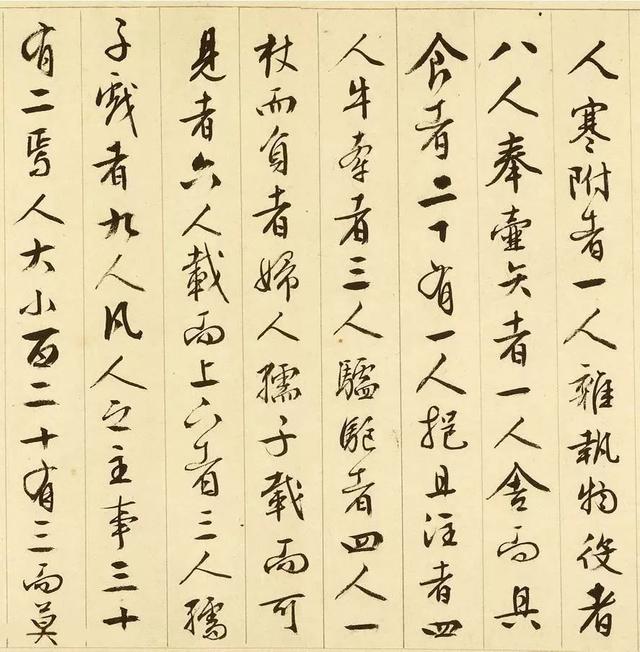 人寒附者一人雜執物役者
八人奉壺矢者一人舍而具
食者二十有一人挹且注者四
人牛牽者三人驢駝者四人一
杖而負者婦人孺子載而可
見者六人載而上下者三人孺
子戲者九人凡人之主事三十
有二焉人大小百二十有三而莫